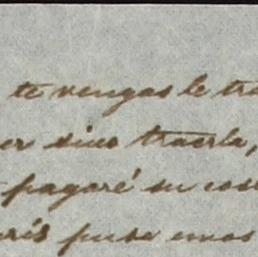 te vengas le tra
er sino traerla,
pagaré su cos
rís puse unos